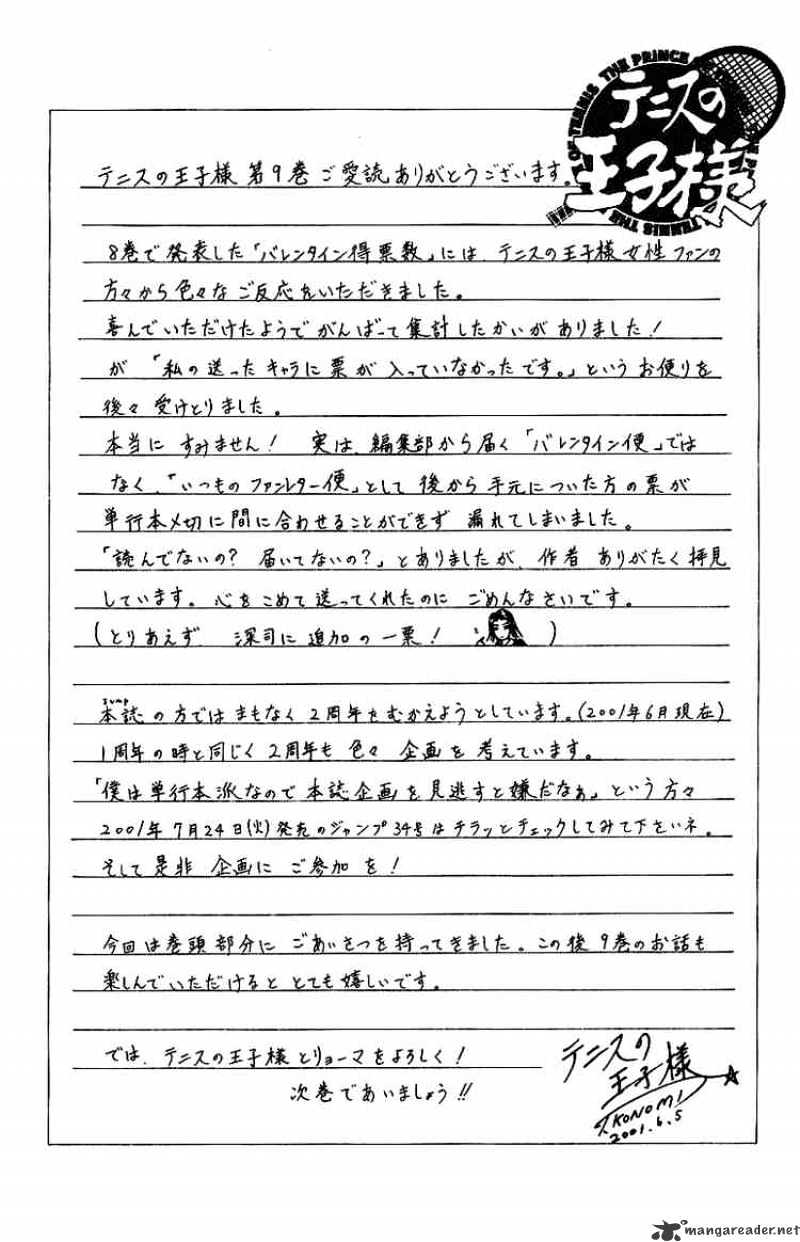 THE PRINCE OF TENNIS
テニスの
王子様
テニスの王子様 第9巻 ご愛読ありがとうございます。
8巻で発表した「バレンタイン得票数」には、テニスの王子様女性ファンの
方々から色々なご反応をいただきました。
喜んでいただけたようでがんばって集計したかいがありました!
が「私の送ったキャラに票が入っていなかったです。」というお便りを
後々受けとりました。
本当にすみません! 実は、編集部から届く「バレンタイン便」では
なく、「いつものファンレター便」として後から手元についた方の票が
単行本〆切に間に合わせることができず漏れてしまいました。
「読んでないの? 届いてないの?」とありましたが、作者ありがたく拝見
しています。心をこめて送ってくれたのにごめんなさいです。
(とりあえず 深司に追加の一票! )
Jump
本誌の方ではまもなく2周年をむかえようとしています。(2001年6月現在)
1周年の時と同じく2周年も色々企画を考えています。
「僕は単行本派なので本誌企画を見逃すと嫌だなぁ」という方々
2001年7月24日(火)発売のジャンプ34号はチラッとチェックしてみて下さいネ。
そして是非企画にご参加を!
今回は巻頭部分にごあいさつを持ってきました。この後9巻のお話も
楽しんでいただけるととても嬉しいです。
では、テニスの王子様とリョーマをよろしく!
次巻であいましょう!!
テニスの
王子様
T.KONOMI
2001.6.5
mangareader.net